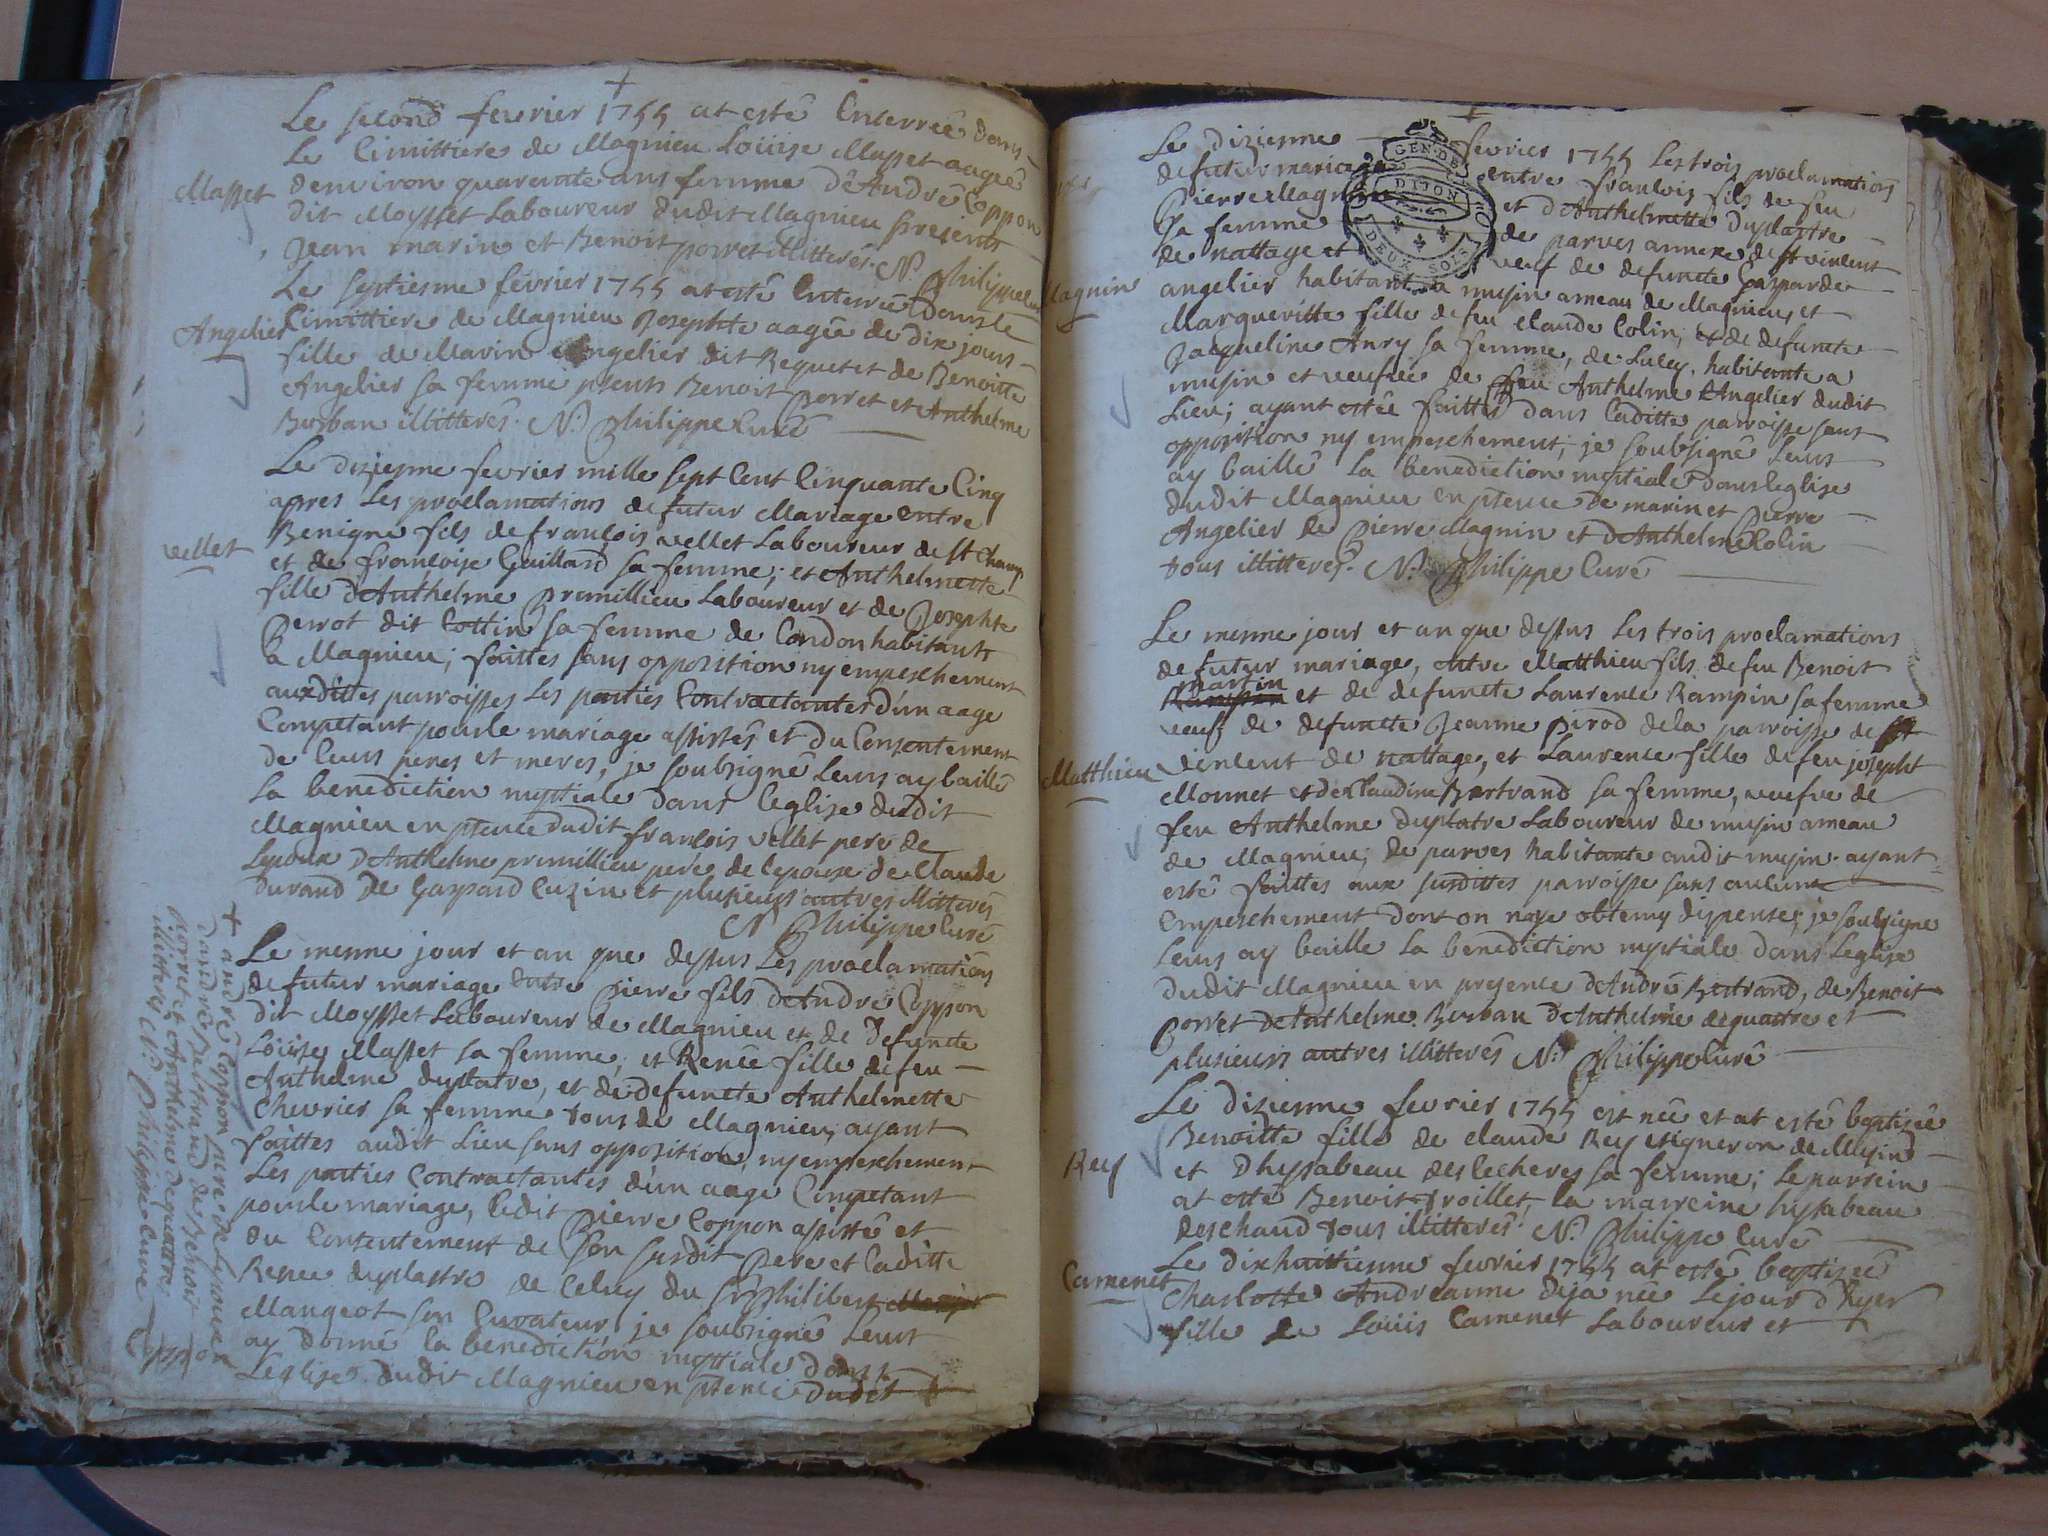 Le second fevrier 1755 at esté Enterreé dans
Le Cimittiere de Magnieu Loüise Masset aageé
Masset
denviron quarente ans femme d'André Coppon
dit Moysset Laboureur dudit Magnieu presents
Jean marin et Benoit porret illitterés. N. Philippe Curé
Le septiesme février 1755 at esté Enterreé dans le
Angelier
Cimittiere de Magnieu Josephte aageé de dix jours
fille de Marin Angelier dit Requet et de Benoitte
Angelier sa femme pñents Benoit porret et Anthelme
Burban illitterés. N. Philippe Curé
Le dizieme fevrier mille sept Cent Cinquante Cinq
appres Les proclamations de futur Mariage entre
Vellet
Benigne fils de françois vellet Laboureur de St Champ
et de françoise Guillard sa femme; et Anthelmette
fille d'Anthelme primillieu Laboureur et de Josephte
perrot dit Cottin sa femme de Condon habitants
a Magnieu; faittes sans opposition ny empeschement
auxdittes parroisses Les parties Contractantes d'un aage
Competant pour le mariage assistés et du Consentement
de leurs peres et meres, je soubsigné Leurs ay baillé
La benediction nuptiale dans l'eglise dudit
Magnieu en pñence dudit françois vellet pere de
Lepoux d'Anthelme primillieu pere de lepouse de Claude
Durand de Gaspard Cuzin et plusieurs autres illitterés
N Philippe Curé
Le meme jour et an que dessus Les proclamations
de futur mariage entre Pierre fils d'André Coppon
dit Moysset Laboureur de Magnieu et de Defuncte
Loüise Masset sa femme; et Renée fille de feu
Anthelme duplatre, et de defuncte Anthelmette
Chevrier sa femme tous de Magnieu, ayant
faittes audit Lieu sans opposition, ny empeschement
Les parties Contractantes d'un aage Competant
pour le mariage, Ledit pierre Coppon assisté et
du Consentement de son susdit pere et Laditte
Renee duplastre de Celuy du Sr philibert
Mangeot son Curateur je soubsigné Leurs
ay donné la benediction nuptiale dans
L'eglise dudit Magnieu en pñence dudit
+ andré Coppon pere de Lepoux
d'andré Bertrand de Benoit
porret et Anthelme dequattre
illitterés N. Philippe Curé
Coppon
Le dizieme fevrier 1755 Les trois proclamations
de futur mariage entre françois fils de feu
Pierre Magnin et d'Anthelmette Duplastre
sa femme de parves annexe de St vincent
de nattage et veuf de defuncte Gasparde
Magnin
angelier habitant a musin ameau de Magnieu, et
Marguéritte fille de feu Claude Colin, et de defuncte
Jacqueline Anry sa femme, de Lucey, habitante a
musin et veufve de feu Anthelme Angelier dudit
Lieu; ayant estée faittes dans Laditte parroisse sans
opposition ny empeschement; je soubsigné Leurs
ay baillé La benediction nuptiale dans l'eglise
dudit Magnieu en pñence de marin et Pierre
Angelier de Pierre Magnin et d'Anthelme Colin
tous illitterés. N. Philippe Curé
Le meme jour et an que dessus Les trois proclamations
de futur mariage, entre Matthieu fils de feu Benoit
martin
et de defuncte Laurence Rampin sa femme
veuf de defuncte Jeanne pirod de la paroisse de St
Matthieu
vincent de nattage, et Laurence fille de feu joseph
Monnet et de Claudine Bertrand sa femme, veufve de
feu Anthelme duplatre Laboureur de musin ameau
de Magnieu, de parves habitante audit musin ayant
esté faittes aux susdittes parroisse sans aulcune
empeschement dont on naye obtenu dispense; je soubsigne
Leurs ay baille La benediction nuptiale dans Leglise
dudit Magnieu en presence d'André Bertrand, de Benoit
Porret d'Anthelme Burban d'Anthelme dequattre et
plusieurs autres illitterés N. Philippe Curé
Le dizieme fevrier 1755 est née et at esté baptiseé
Benoitte fille de claude Rey vigneron de Musin
Rey
et d'hysabeau deslecheres sa femme; Le parrein
at esté Benoit troillet, la marreine hysabeau
Deschaud tous illitterés. N. Philippe Curé
Le dixhuittieme fevrier 1755 at esté baptiseé
Camenet
Charlotte Andréanne deja née Lejour d'hyer
fille de Loüis Camenet Laboureur et
GEN. DE
DIJON
DEUX SOLS